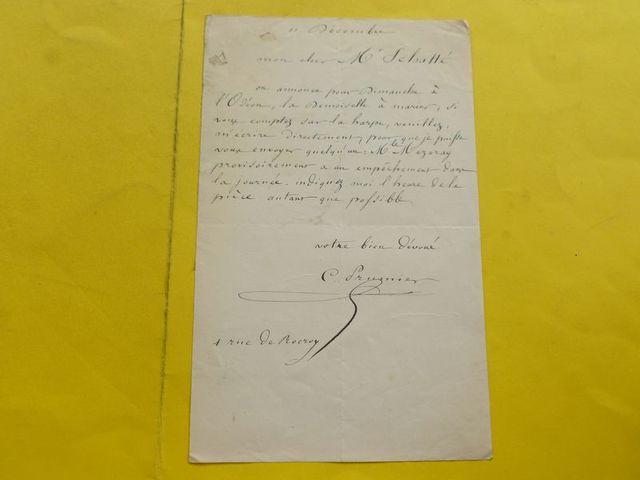 11 Décembre
mon cher Mr Schatté
on annonce pour Dimanche à
l'Odéon, la Demoiselle à marier, si
vous comptez sur la harpe, veuillez,
m'écrire directement, pour que je puisse
vous envoyer quelqu'un; Mlle Mezeray
provisoirement a un empêchement dans
la journée. indiquez moi l'heure de la
pièce autant que possible.
votre bien dévoué
C. Prumier
4 rue de Rocroy